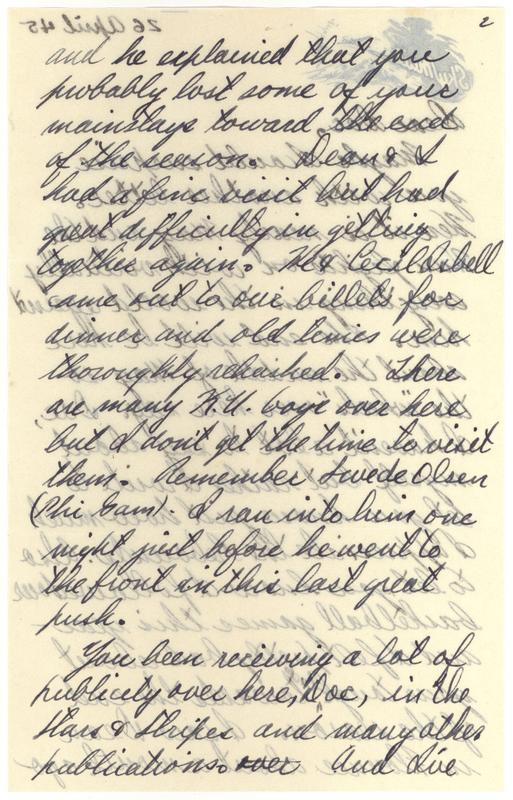 2
and he explained that you
probably lost some of your
mainstays toward the end
of the season. Dean & I
had a fine visit but had
great difficulty in getting
together again. He & Cecil
came out to our billets for
dinner and old times were
thoroughly rehashed. There
are many K.U. boys over here
but I don't get the time to visit
them. Remember Swede Olsen
(Phi Gam). I ran into him one
night just before he went to
the front in this last great
push.
You been receiving a lot of
publicity over here, Doc, in the
Stars & Stripes and many other
publications. over And I've
26 April 45